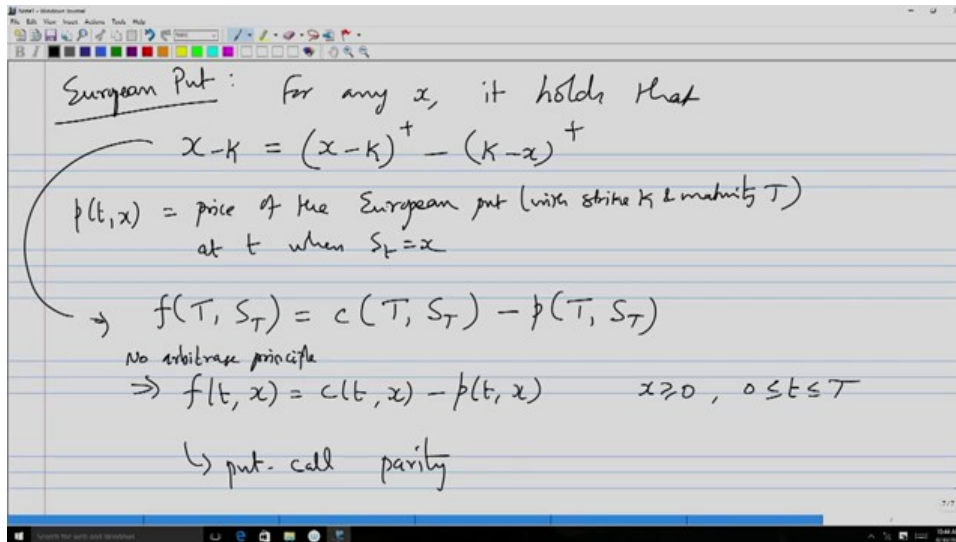 Note1 - Windows Journal
File Edit View Insert Actions Tools Help
B I
European Put : For any x, it holds that
x-K = (x-K)⁺ - (K-x)⁺
p(t,x) = price of the European put (with strike K & maturity T)
at t when S_t = x
→ f(T, S_T) = c(T, S_T) - p(T, S_T)
No arbitrage principle
⇒ f(t, x) = c(t, x) - p(t, x) x ≥ 0 , 0 ≤ t ≤ T
↳ put-call parity
7/7
Search the web and Windows